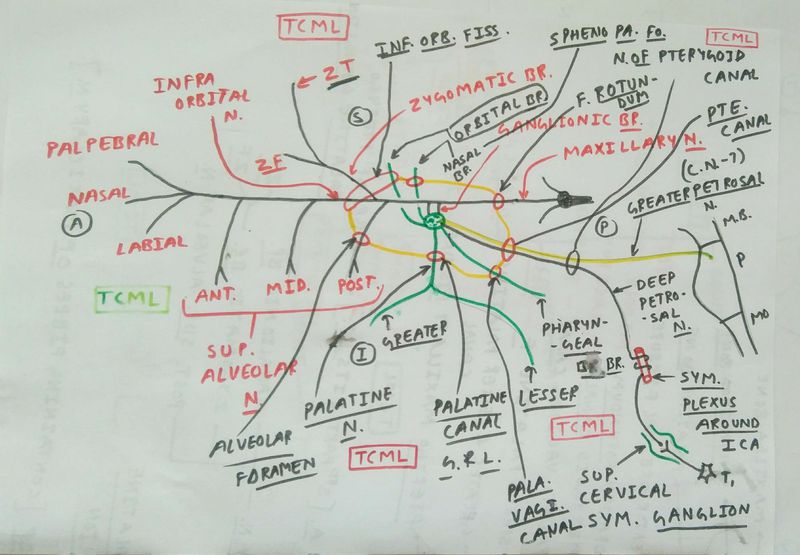 TCML
INF. ORB. FISS.
SPHENO PA. FO.
TCML
N. OF PTERYGOID
CANAL
INFRA
ORBITAL
N.
ZT
ZYGOMATIC BR.
S
ORBITAL BR.
F. ROTUN-
DUM
GANGLIONIC BR.
NASAL
BR.
PTE.
CANAL
PALPEBRAL
ZF
MAXILLARY N.
(C.N-7)
GREATER PETROSAL
N.
NASAL
A
P
M.B.
LABIAL
P
TCML
ANT.
MID.
POST.
DEEP
PETRO-
SAL
N.
MO
GREATER
I
PHARYN-
GEAL
BR.
SUP.
ALVEOLAR
N.
LESSER
SYM.
PLEXUS
AROUND
ICA
PALATINE
N.
PALATINE
CANAL
G.R L.
TCML
ALVEOLAR
FORAMEN
TCML
PALA.
VAGI.
CANAL
SUP.
CERVICAL
SYM. GANGLION
T1